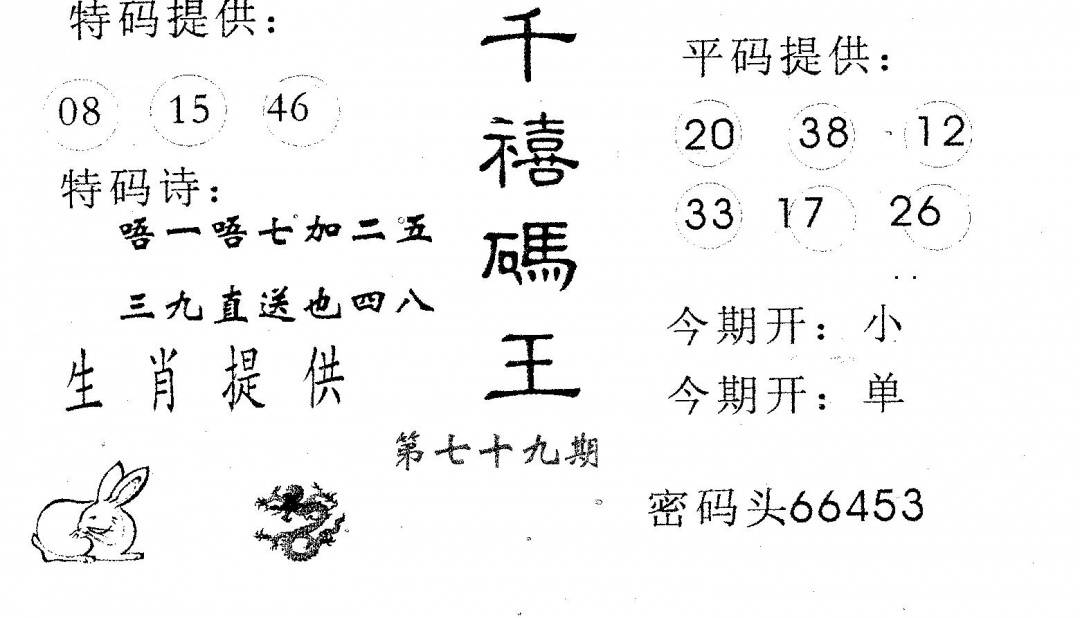 特码提供：
08 15 46
特码诗：
唔一唔七加二五
三九直送也四八
生肖提供
千禧碼王
第七十九期
平码提供：
20 38 12
33 17 26
今期开：小
今期开：单
密码头66453